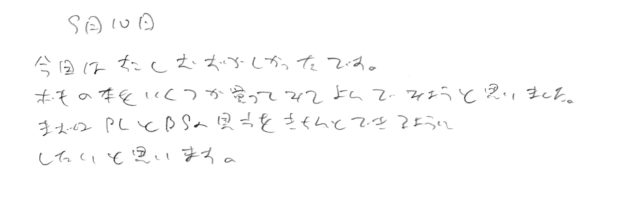 5月10日
今回はすこしむずかしかったです。
の本をいくつか買ってみてよんでみようと思いました。
まずはPLとBSの見方をきちんとできるように
したいと思います。